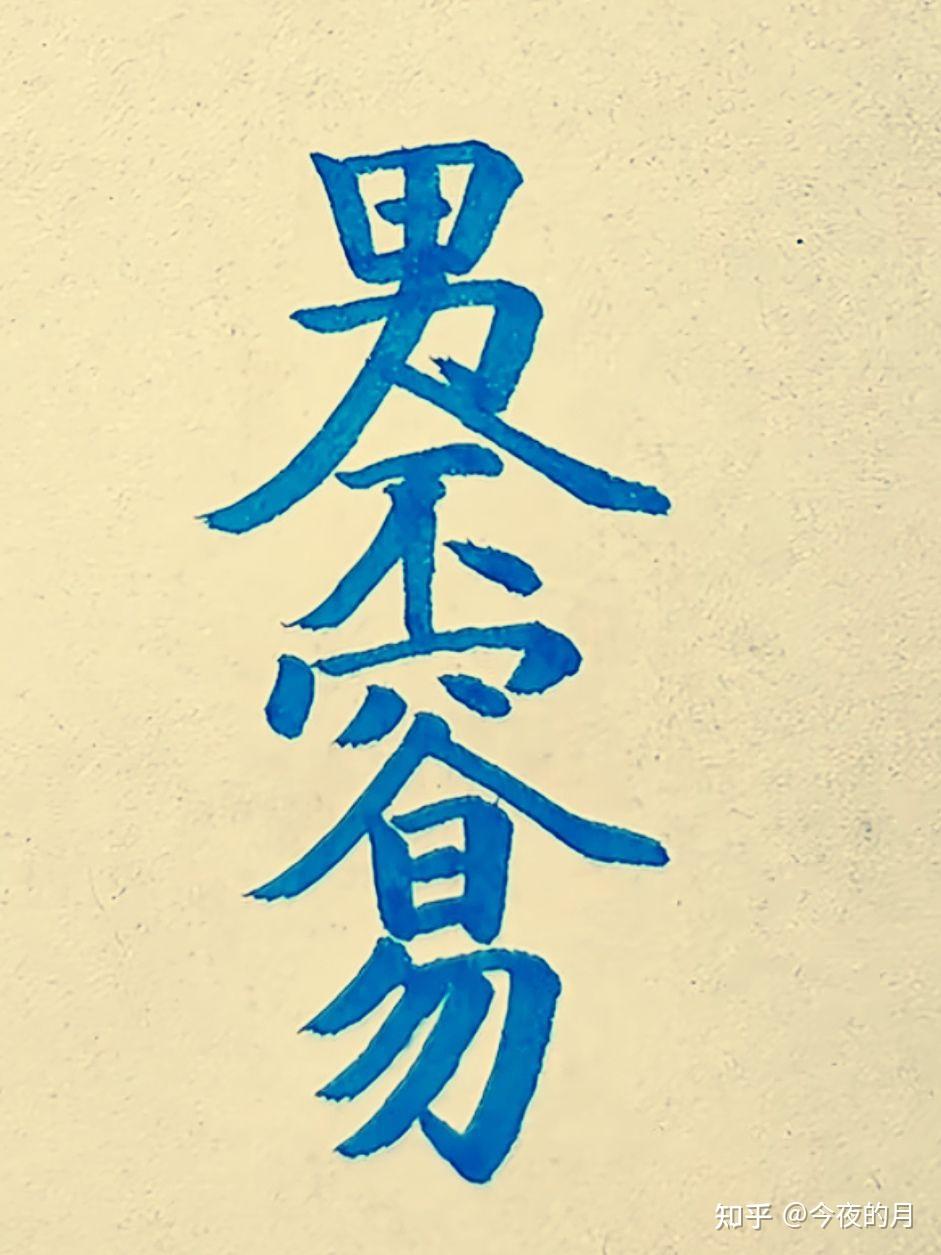 男人不容易
知乎 @今夜的月